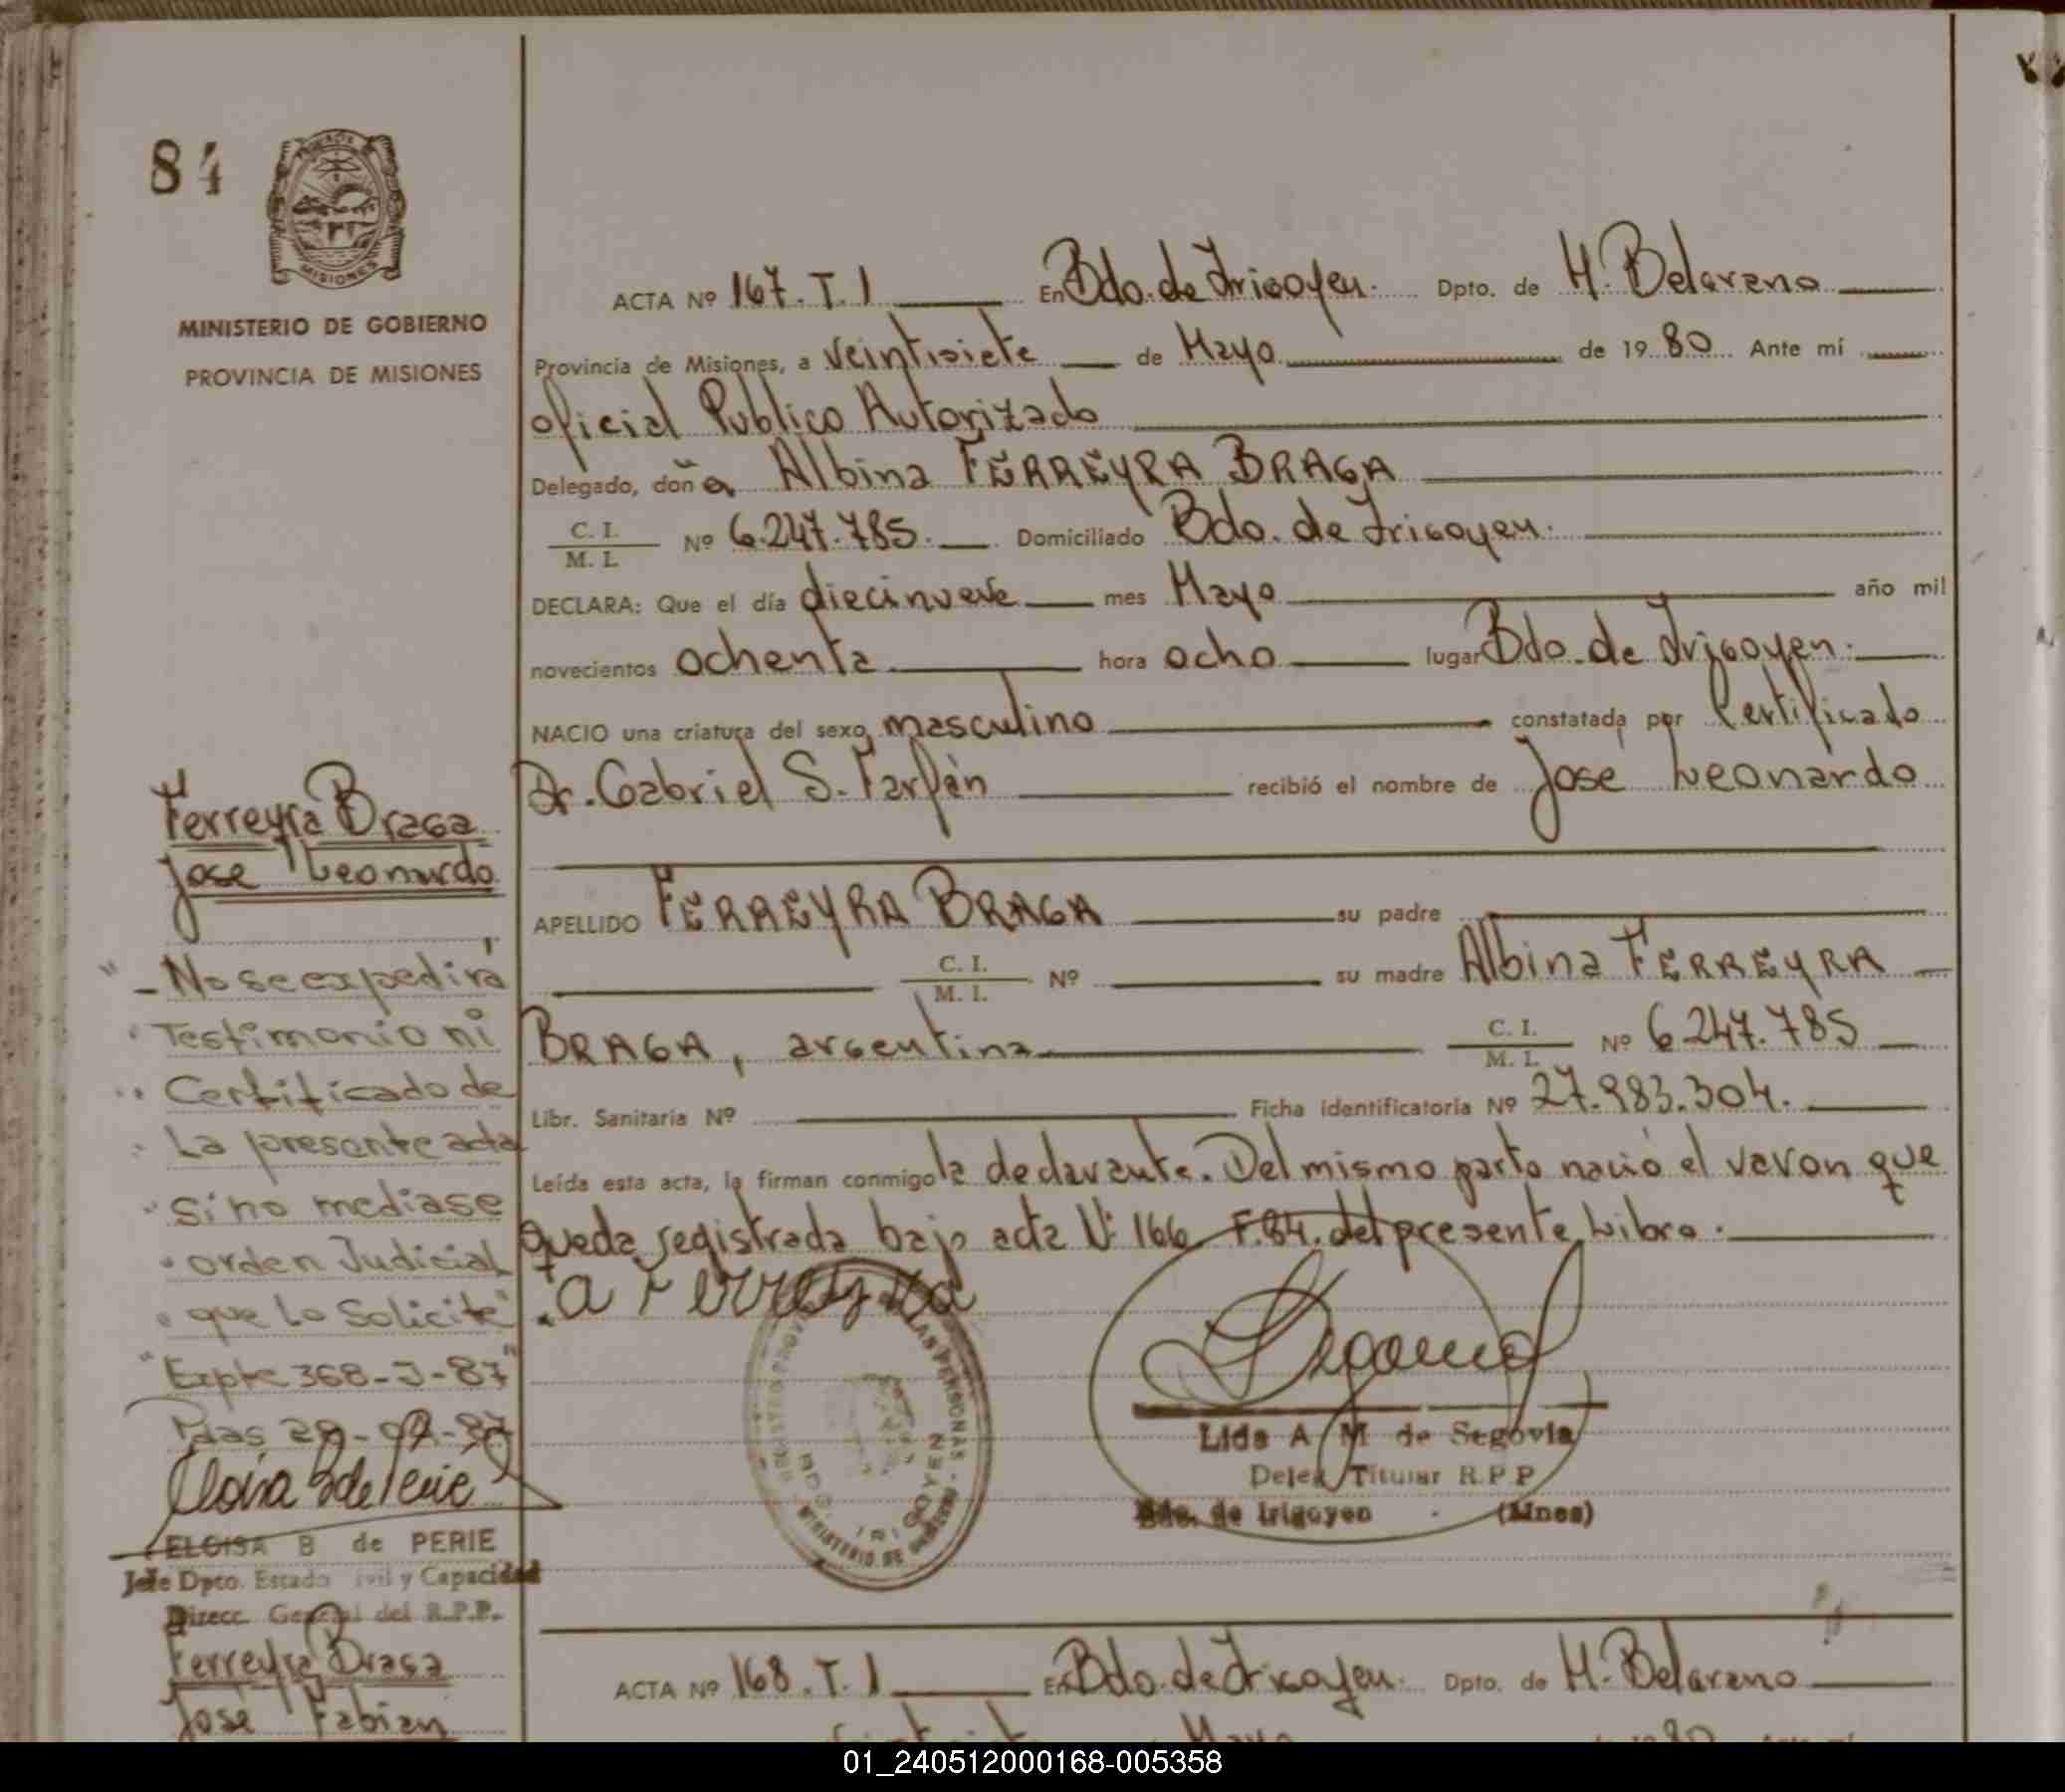 84
MISIONES
MINISTERIO DE GOBIERNO
PROVINCIA DE MISIONES
ACTA Nº 167.T.1 En Bdo. de Irigoyen. Dpto. de M. Belgrano
Provincia de Misiones, a veintisiete de Mayo de 1980 Ante mí
oficial Publico Autorizado
Delegado, doña Albina FERREYRA BRAGA
C. I. / M. I. Nº 6.247.785. Domiciliado Bdo. de Irigoyen.
DECLARA: Que el día diecinueve mes Mayo año mil
novecientos ochenta hora ocho lugar Bdo. de Irigoyen.
NACIO una criatura del sexo masculino constatada por Certificado
Dr. Gabriel S. Farfán recibió el nombre de José Leonardo
APELLIDO FERREYRA BRAGA su padre
C. I. / M. I. Nº su madre Albina FERREYRA
BRAGA, argentina C. I. / M. I. Nº 6.247.785
Libr. Sanitaria Nº Ficha identificatoria Nº 27.983.304.
Leída esta acta, la firman conmigo la declarante. Del mismo parto nació el varon que
queda registrada bajo acta Nº 166 F.84. del presente Libro.
a Ferreyra
Lida A M de Segovia
Deleg Titular R.P.P
Bdo. de Irigoyen - (Mnes)
Ferreyra Braga
Jose Leonardo
"- No se expedirá
" Testimonio ni
" Certificado de
" La presente acta
" Si no mediase
" orden Judicial
" que lo Solicite"
"Expte 368-J-87"
Pdas
ELOISA B de PERIE
Jefe Dpto. Estado ivil y Capacidad
Direcc General del R.P.P.
Ferreyra Braga
José Fabian
ACTA Nº 168.T.1 En Bdo. de Irigoyen. Dpto. de M. Belgrano
01_240512000168-005358